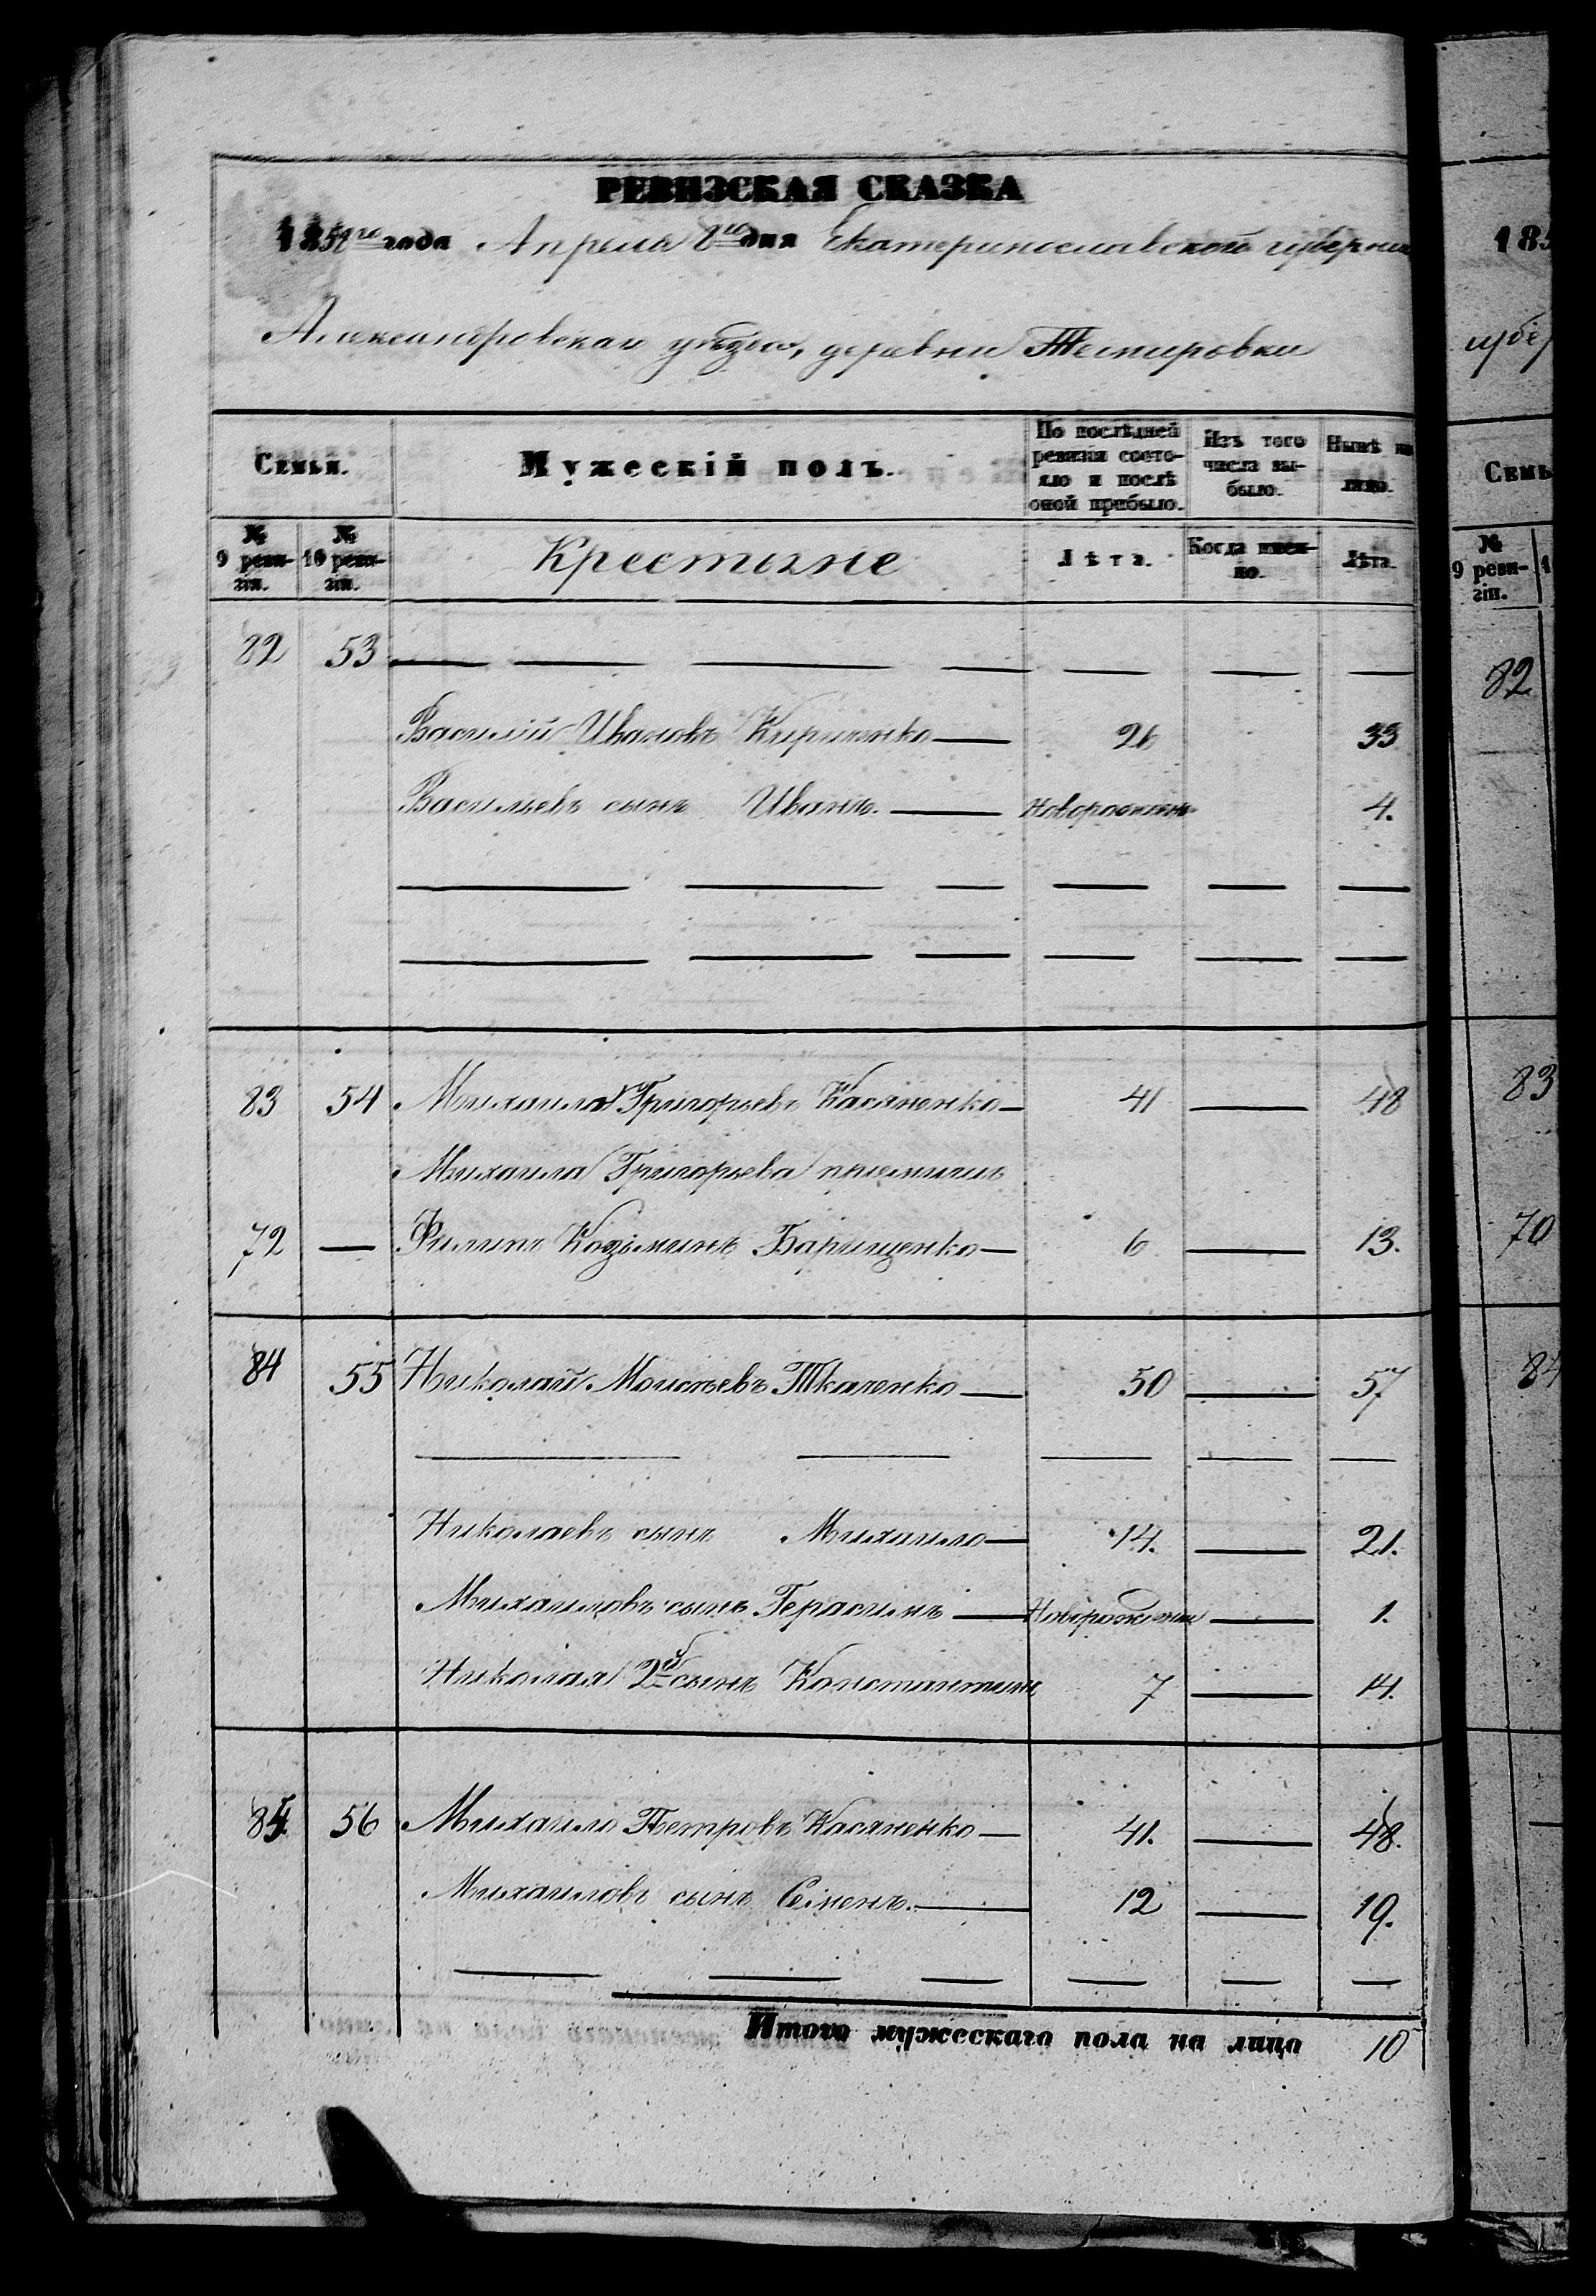 РЕВИЗСКАЯ СКАЗКА
1858го года Апреля 8го дня Екатеринославской губернии
Александровскаго уѣзда, деревни Темировки
Семьи. Мужескій полъ. По послѣдней ревизіи состояло и послѣ оной прибыло. Изъ того числа выбыло. Нынѣ на лицо.
№ 9 ревизіи. № 10 ревизіи. Крестьяне Лѣта. Когда именно. Лѣта.
82 53 — — — — — — —
Василій Ивановъ Кириченко — 26 33
Васильевъ сынъ Иванъ. — Новорожденъ 4.
— — — — — —
— — — — — —
83 54 Михаило Григорьевъ Касяненко — 41 — 48
Михаила Григорьева приемышъ
72 — Филипъ Козьминъ Барищенко — 6 — 13.
84 55 Николай Моисѣевъ Ткаченко — 50 — 57
— — — — —
Николаевъ сынъ Михаило — 14. — 21.
Михаиловъ сынъ Герасимъ — Новорожденъ — 1.
Николая 2й сынъ Константинъ 7 — 14.
85 56 Михаило Петровъ Касяненко — 41. — 48.
Михаиловъ сынъ Семенъ. — 12 — 19.
— — — — — —
Итого мужескаго пола на лицо 10
185
губер
Семь
№ 9 ревизіи. 1
82
83
70
84